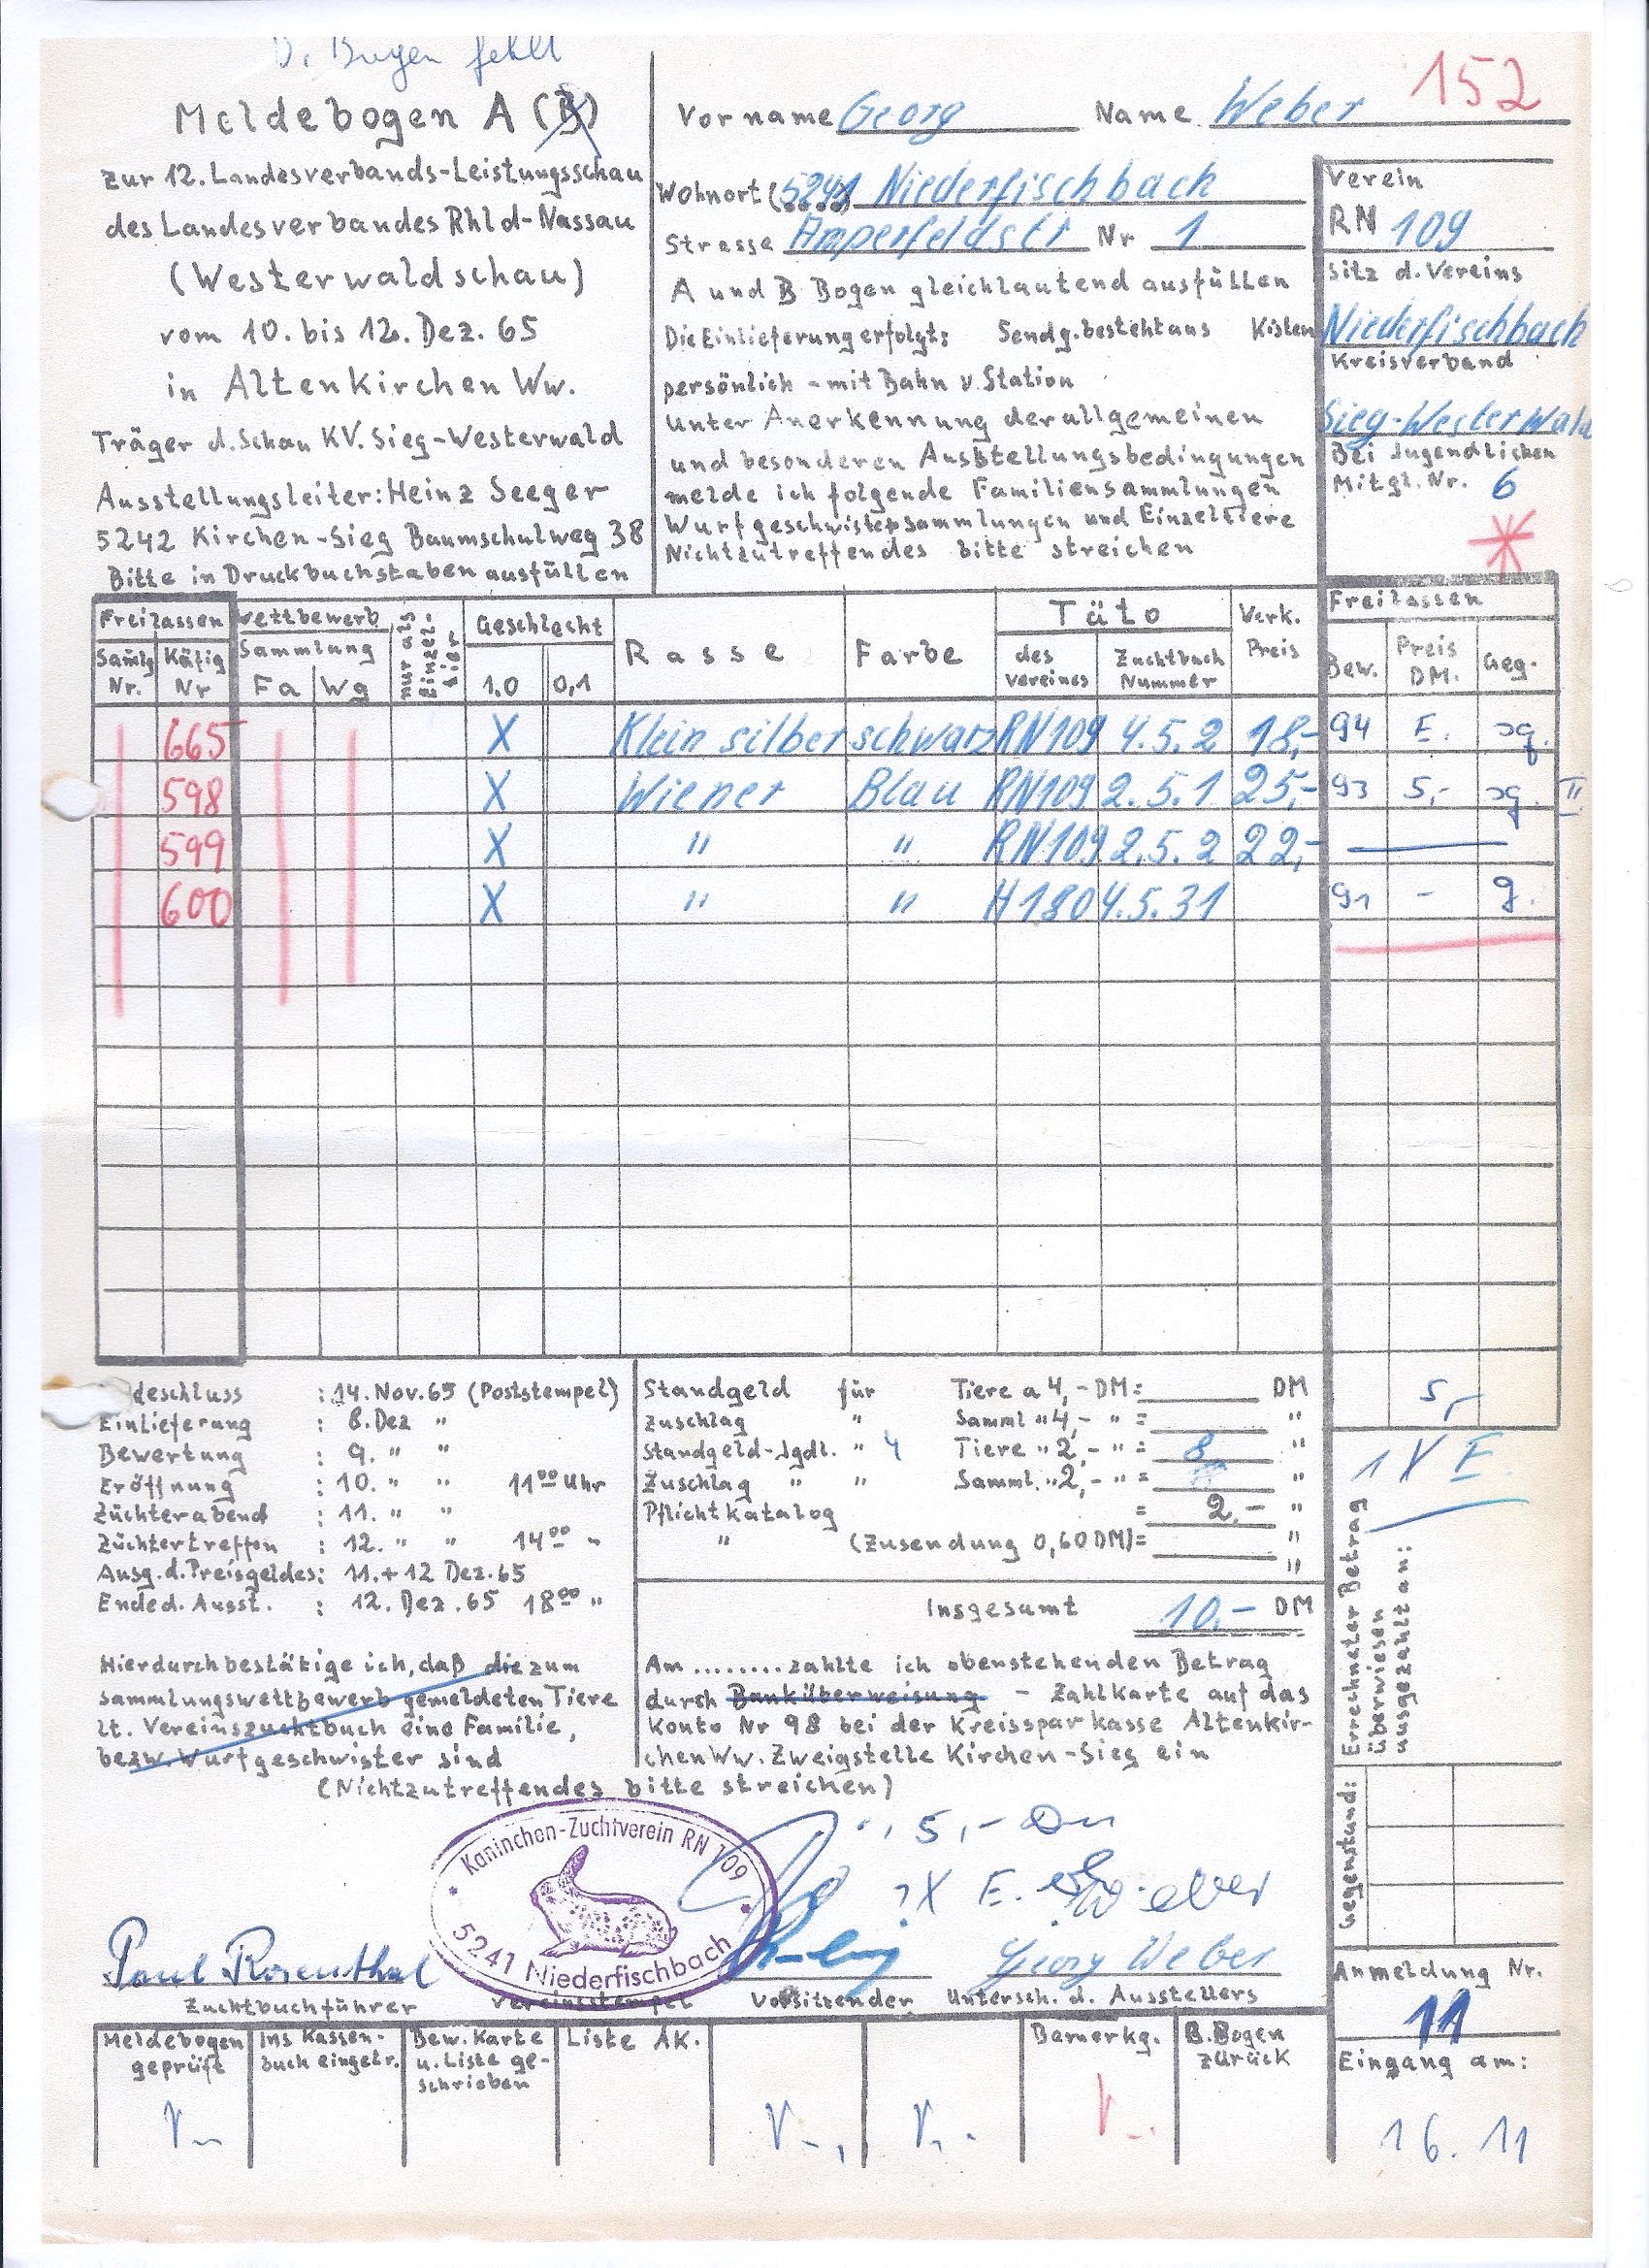 B. Bogen fehlt
Meldebogen A (B)
zur 12. Landesverbands-Leistungsschau
des Landesverbandes Rhld-Nassau
(Westerwaldschau)
vom 10. bis 12. Dez. 65
in Altenkirchen Ww.
Träger d. Schau KV. Sieg-Westerwald
Ausstellungsleiter: Heinz Seeger
5242 Kirchen-Sieg Baumschulweg 38
Bitte in Druckbuchstaben ausfüllen
152
Vorname Georg Name Weber
Wohnort (5241) Niederfischbach
Strasse Amperfeldstr Nr 1
A und B Bogen gleichlautend ausfüllen
Die Einlieferung erfolgt: Sendg. besteht aus Kisten
persönlich - mit Bahn v. Station
Unter Anerkennung der allgemeinen
und besonderen Ausstellungsbedingungen
melde ich folgende Familiensammlungen
Wurfgeschwistersammlungen und Einzeltiere
Nichtzutreffendes bitte streichen
Verein
RN 109
Sitz d. Vereins
Niederfischbach
Kreisverband
Sieg-Westerwald
Bei Jugendlichen
Mitgl. Nr. 6
Freilassen Wettbewerb nur als Einzeltier Geschlecht Rasse Farbe Täto Verk. Preis Freilassen
Samlg Nr. Käfig Nr Sammlung Fa Wg 1.0 0,1 des Vereines Zuchtbuch Nummer Bew. Preis DM. Geg.
665 X Klein silber schwarz RN109 4.5.2 18,- 94 E. sg.
598 X Wiener Blau RN109 2.5.1 25,- 93 5,- sg. II
599 X " " RN109 2.5.2 22,- —
600 X " " H180 4.5.31 91 - g.
deschluss : 14. Nov. 65 (Poststempel)
Einlieferung : 8. Dez "
Bewertung : 9. " "
Eröffnung : 10. " " 11⁰⁰ Uhr
Züchterabend : 11. " "
Züchtertreffen : 12. " " 14⁰⁰ "
Ausg. d. Preisgeldes: 11. + 12 Dez. 65
Ende d. Ausst. : 12. Dez. 65 18⁰⁰ "
Standgeld für Tiere a 4,- DM = DM
Zuschlag " Samml " 4,- " = "
Standgeld-Jgdl. " 4 Tiere " 2,- " = 8 "
Zuschlag " " Samml. " 2,- " = "
Pflichtkatalog = 2,- "
" (Zusendung 0,60 DM) = "
"
Insgesamt 10.- DM
5,-
1 X E
Errechneter Betrag
überwiesen
ausgezahlt an:
Hierdurch bestätige ich, daß die zum
Sammlungswettbewerb gemeldeten Tiere
lt. Vereinszuchtbuch eine Familie,
bezw. Wurfgeschwister sind
Am ........ zahlte ich obenstehenden Betrag
durch Banküberweisung - Zahlkarte auf das
Konto Nr 98 bei der Kreissparkasse Altenkir-
chen Ww. Zweigstelle Kirchen-Sieg ein
(Nichtzutreffendes bitte streichen)
Gegenstand:
Kaninchen-Zuchtverein RN 109
5241 Niederfischbach
5,- DM
1X E. Weber
Paul Rosenthal
Georg Weber
Zuchtbuchführer Vereinsstempel Vorsitzender Untersch. d. Ausstellers
Anmeldung Nr.
11
Eingang am:
16. 11
Meldebogen geprüft
Ins Kassenbuch eingetr.
Bew. Karte u. Liste geschrieben
Liste AK.
Bemerkg.
B. Bogen zurück